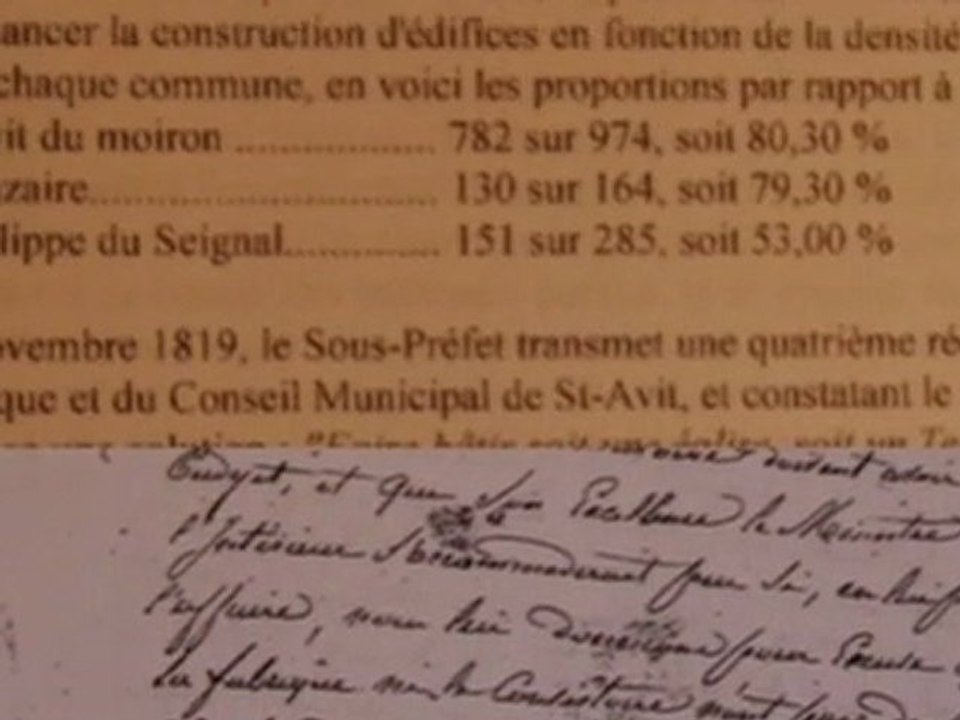 ancer la construction d'édifices en fonction de la densité
chaque commune, en voici les proportions par rapport à
it du moiron .................. 782 sur 974, soit 80,30 %
zaire............................... 130 sur 164, soit 79,30 %
lippe du Seignal.............. 151 sur 285, soit 53,00 %
ovembre 1819, le Sous-Préfet transmet une quatrième ré
que et du Conseil Municipal de St-Avit, et constatant le
Budget, et que Son Excellence le Ministre
l'Intérieur
l'affaire,
La fabrique ni le Consistoire n'ont